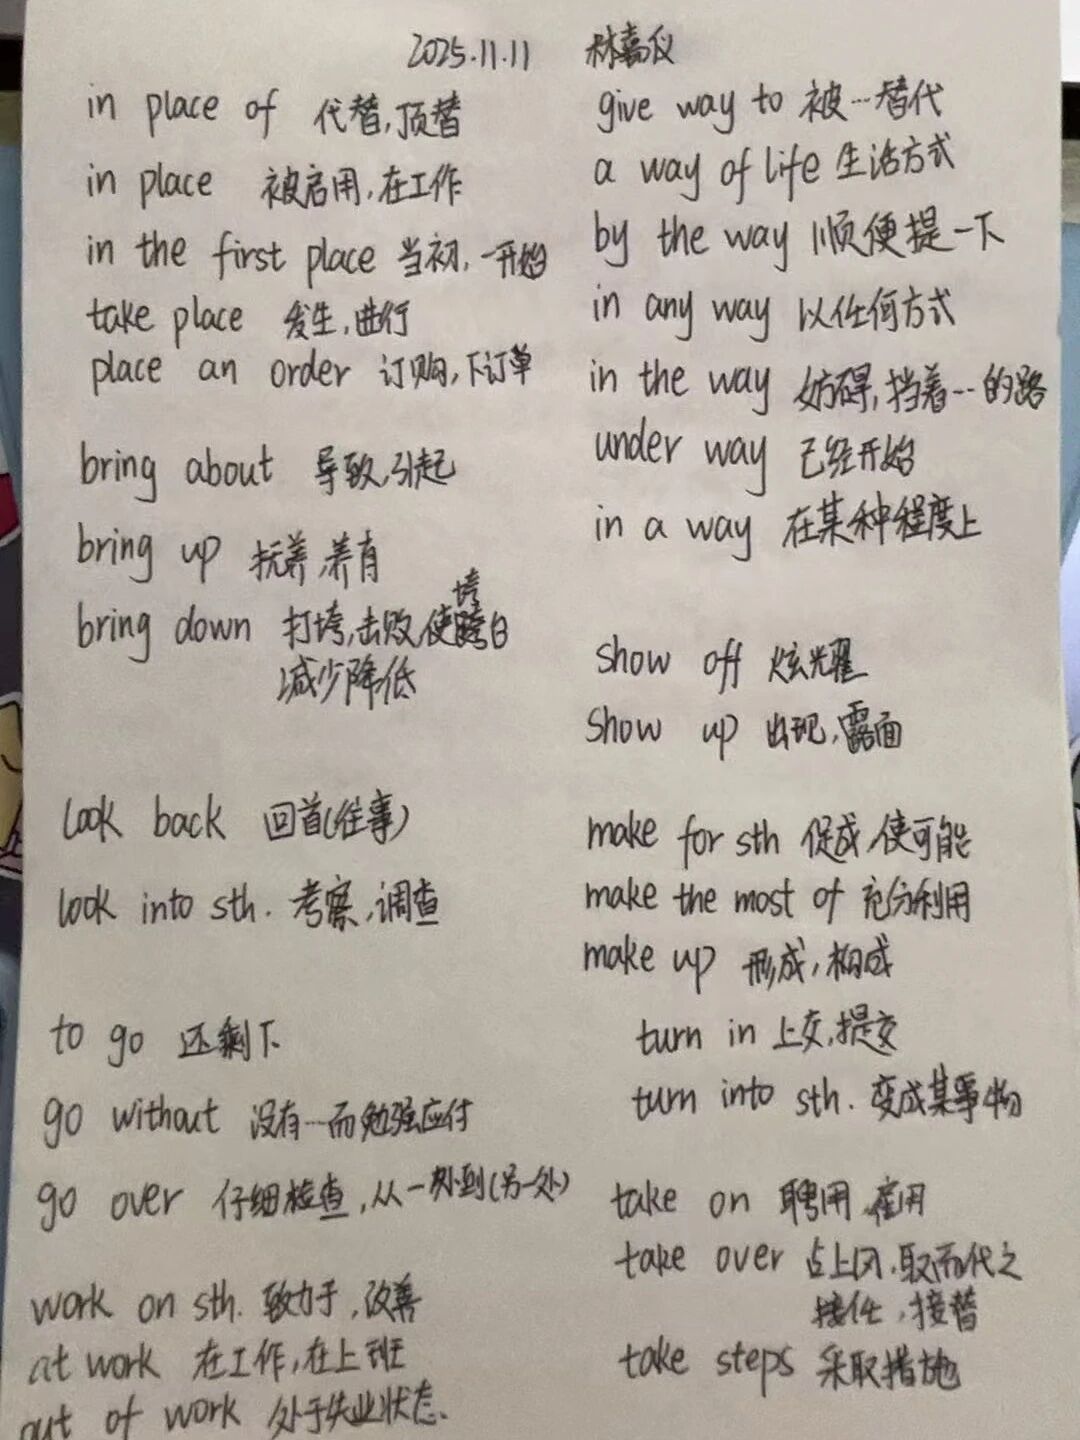 2025.11.11 林嘉仪
in place of 代替,顶替
in place 被启用,在工作
in the first place 当初,一开始
take place 发生,进行
place an order 订购,下订单
bring about 导致,引起
bring up 抚养,养育
bring down 打垮,击败,使垮台
减少降低
look back 回首(往事)
look into sth. 考察,调查
to go 还剩下
go without 没有…而勉强应付
go over 仔细检查,从一处到(另一处)
work on sth. 致力于,改善
at work 在工作,在上班
out of work 处于失业状态.
give way to 被…替代
a way of life 生活方式
by the way 顺便提一下
in any way 以任何方式
in the way 妨碍,挡着…的路
under way 已经开始
in a way 在某种程度上
show off 炫耀
show up 出现,露面
make for sth 促成,使可能
make the most of 充分利用
make up 形成,构成
turn in 上交,提交
turn into sth. 变成某事物
take on 聘用,雇用
take over 占上风,取而代之
接任,接替
take steps 采取措施